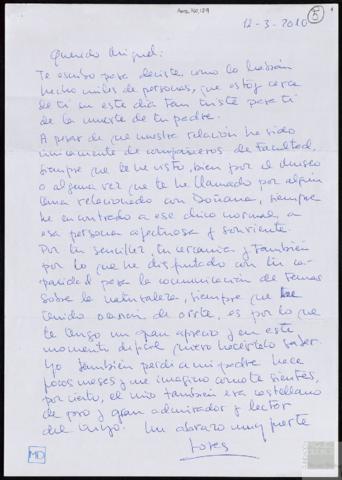 12-3-2010
5
Querido Miguel:
Te escribo para decirte como lo habrán
hecho miles de personas, que estoy cerca
de ti en este día tan triste para ti
de la muerte de tu padre.
A pesar de que nuestra relación ha sido
únicamente de compañeros de Facultad,
siempre que te he visto, bien por el museo
o alguna vez que te he llamado por algún
tema relacionado con Doñana, siempre
he encontrado a ese chico normal, a
esa persona afectuosa y sonriente.
Por tu sencillez, tu cercanía y también
por lo que he disfrutado con tu ca-
pacidad para la comunicación de temas
sobre la naturaleza, siempre que he
tenido ocasión de oirte, es por lo que
te tengo un gran aprecio y en este
momento difícil quiero hacértelo saber.
Yo también perdí a mi padre hace
pocos meses y me imagino como te sientes,
por cierto, el mío también era castellano
de pro y gran admirador y lector
del tuyo. Un abrazo muy fuerte
MD